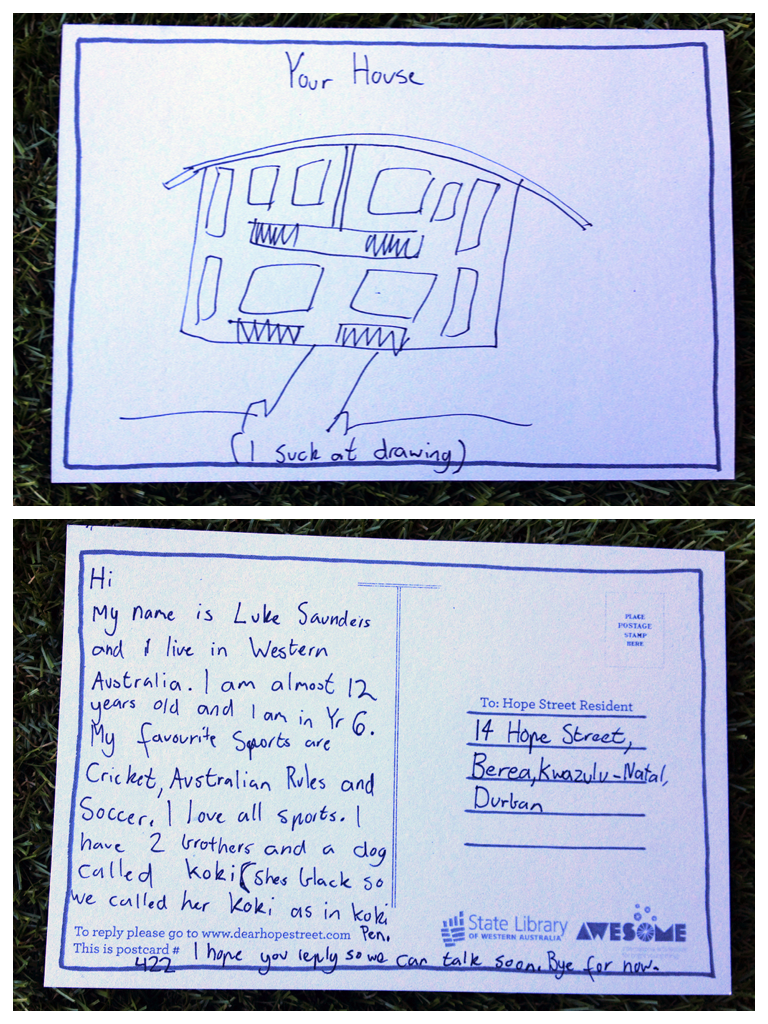 Your House
(I suck at drawing)
Hi
My name is Luke Saunders
and I live in Western
Australia. I am almost 12
years old and I am in Yr 6.
My favourite Sports are
Cricket, Australian Rules and
Soccer. I love all sports. I
have 2 brothers and a dog
called Koki (shes black so
we called her Koki as in koki
Pen.
To reply please go to www.dearhopestreet.com
This is postcard #
422
I hope you reply so we can talk soon. Bye for now.
PLACE
POSTAGE
STAMP
HERE
To: Hope Street Resident
14 Hope Street,
Berea, Kwazulu-Natal,
Durban
State Library
OF WESTERN AUSTRALIA
AWESOME